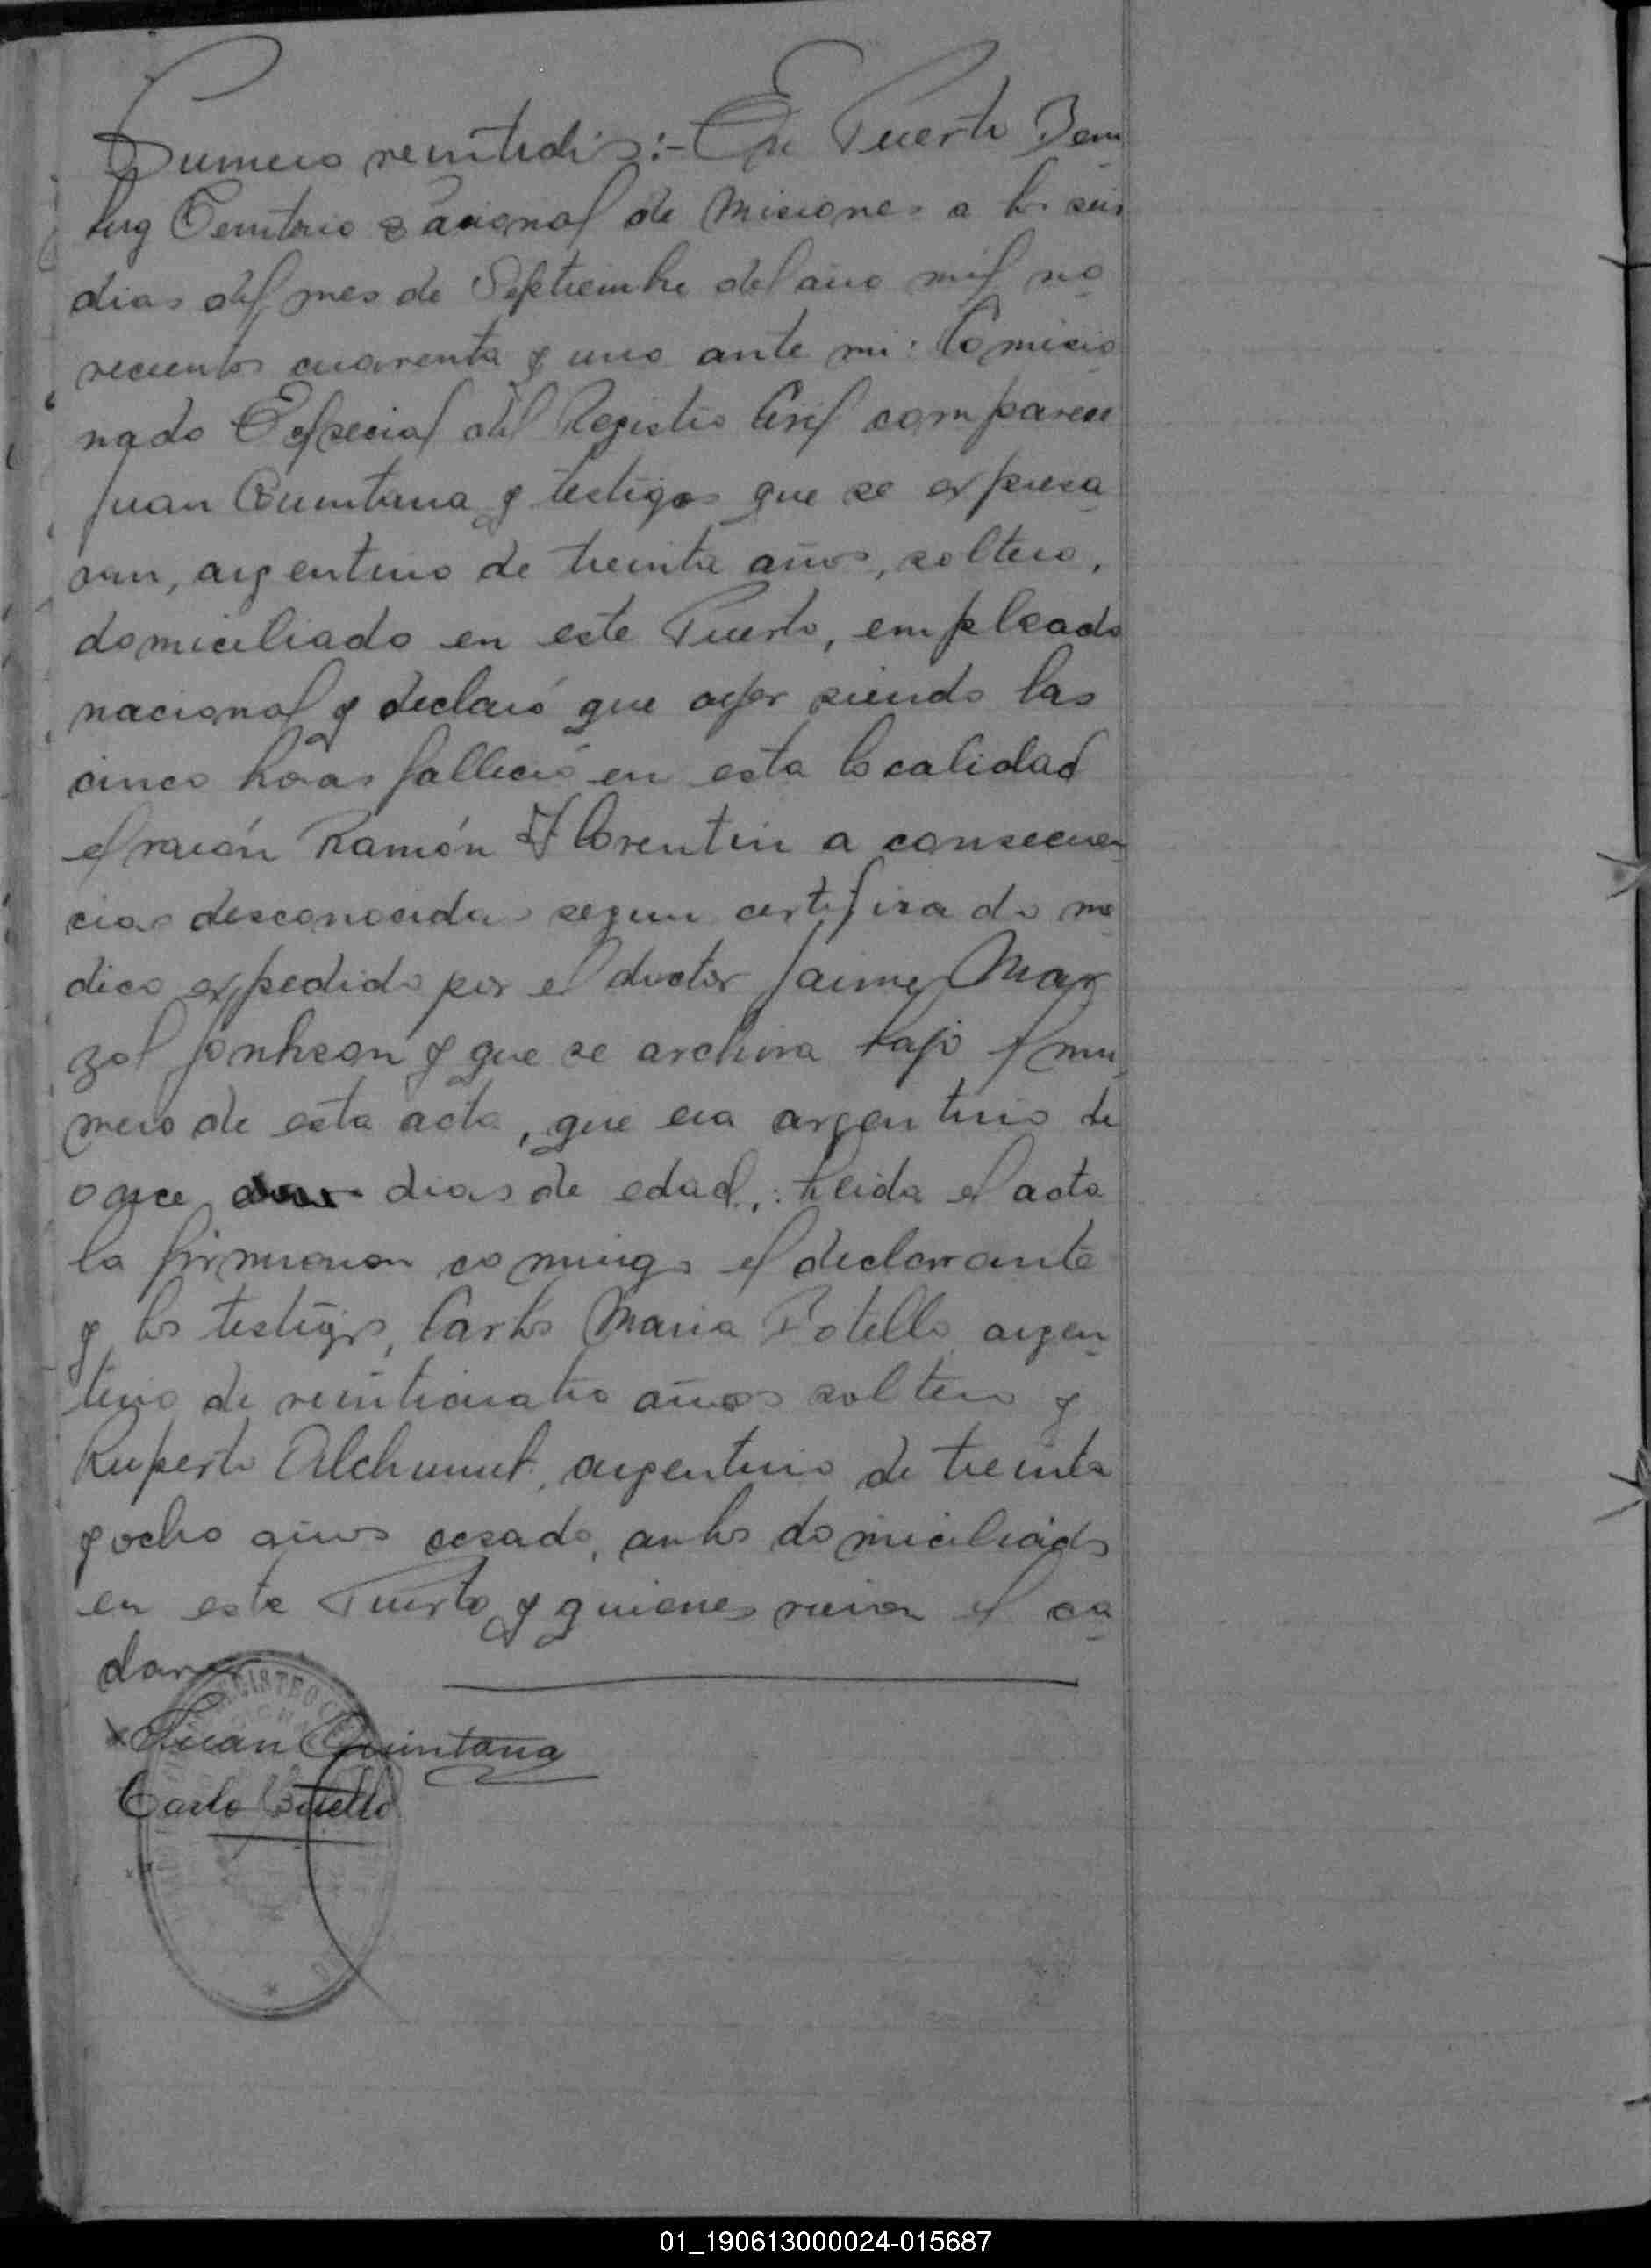 Numero veintidos:- En Puerto Bem
berg Territorio Nacional de Misiones a los seis
dias del mes de Septiembre del año mil no
vecientos cuarenta y uno ante mi: Comisio
nado Especial del Registro Civil comparece
Juan Quintana y testigos que se expresa
ran, argentino de treinta años, soltero,
domiciliado en este Puerto, empleado
nacional y declaró que ayer siendo las
cinco horas falleció en esta localidad
el varón Ramón Florentin a consecuen
cias desconocidas segun certificado me
dico expedido por el doctor Jaime Mar
zol Jonhson y que se archiva bajo el nu
mero de esta acta, que era argentino de
once dias de edad,: leida el acta
la firmaron conmigo el declarante
y los testigos, Carlos Maria Botello argen
tino de veinticuatro años soltero y
Ruperto argentino de treinta
y ocho años casado, ambos domiciliados
en este Puerto y quienes vieron el ca
daver
Juan Quintana
Carlo Botello
REGISTRO
01_190613000024-015687